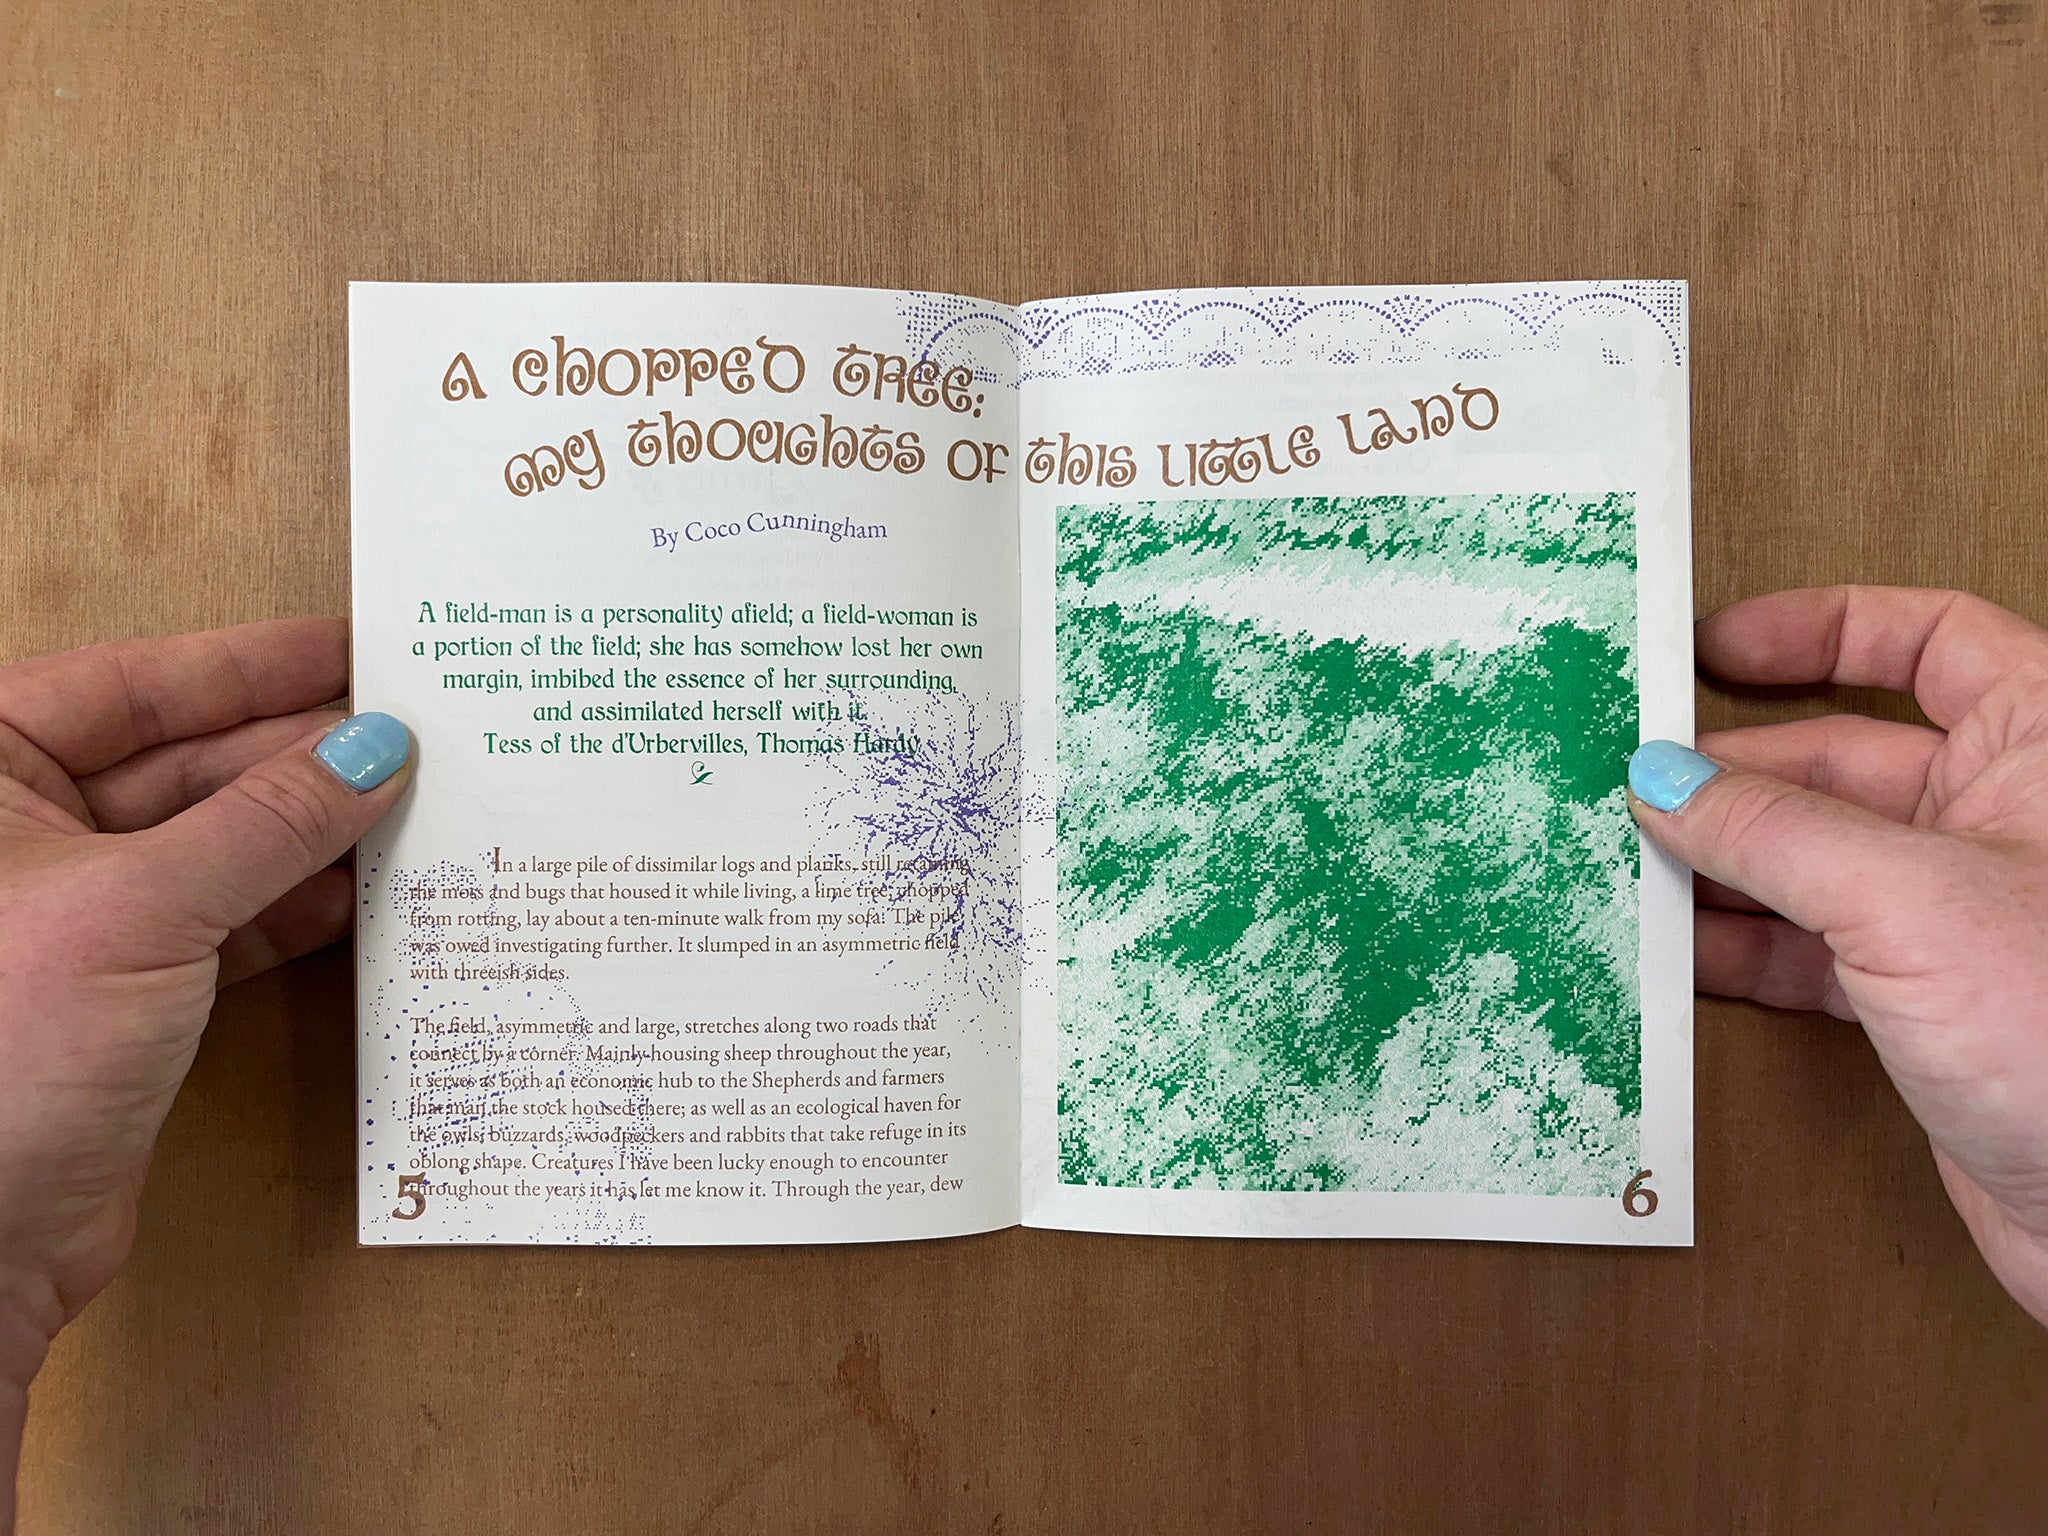 A CHOPPED TREE:
MY THOUGHTS OF THIS LITTLE LAND
By Coco Cunningham
A field-man is a personality afield; a field-woman is
a portion of the field; she has somehow lost her own
margin, imbibed the essence of her surrounding,
and assimilated herself with it.
Tess of the d'Urbervilles, Thomas Hardy
In a large pile of dissimilar logs and planks, still retaining
the moss and bugs that housed it while living, a lime tree, chopped
from rotting, lay about a ten-minute walk from my sofa. The pile
was owed investigating further. It slumped in an asymmetric field
with threeish sides.
The field, asymmetric and large, stretches along two roads that
connect by a corner. Mainly housing sheep throughout the year,
it serves as both an economic hub to the Shepherds and farmers
that man the stock housed there; as well as an ecological haven for
the owls, buzzards, woodpeckers and rabbits that take refuge in its
oblong shape. Creatures I have been lucky enough to encounter
throughout the years it has let me know it. Through the year, dew
5
6